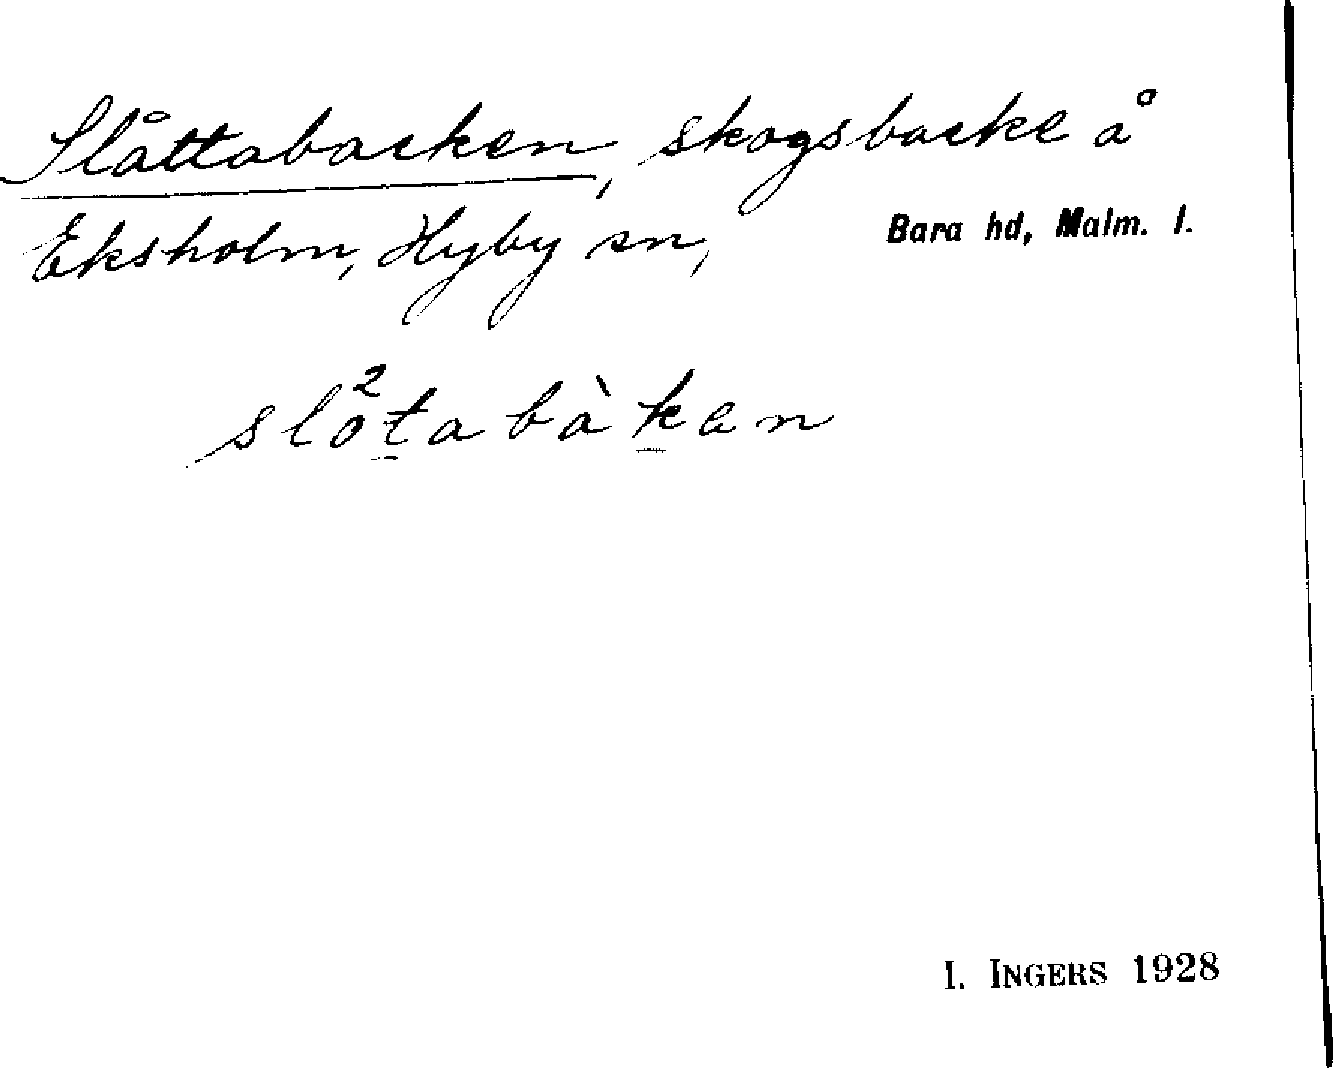 Slåttabacken, skogsbacke å
Eksholm, Hyby sn, Bara hd, Malm. l.
slo²t̲abàk̲en
I. INGERS 1928